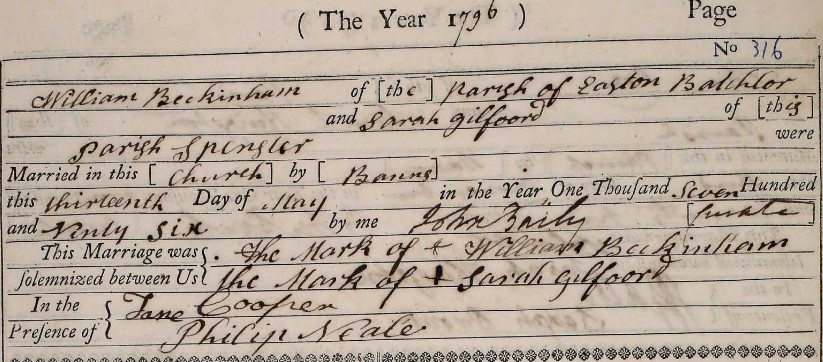 ( The Year 1796 ) Page
No 316
William Beckinham of [the] Parish of Easton Batchlor
and Sarah Gilfoord of [this]
Parish Spinster were
Married in this [ Church ] by [ Banns ]
this thirteenth Day of May in the Year One Thousand Seven Hundred
and Ninty Six by me John Baily [Curate]
This Marriage was . The Mark of + William Beckinham
solemnized between Us the Mark of + Sarah Gilfoord
In the Jane Cooper
Presence of Philip Neale